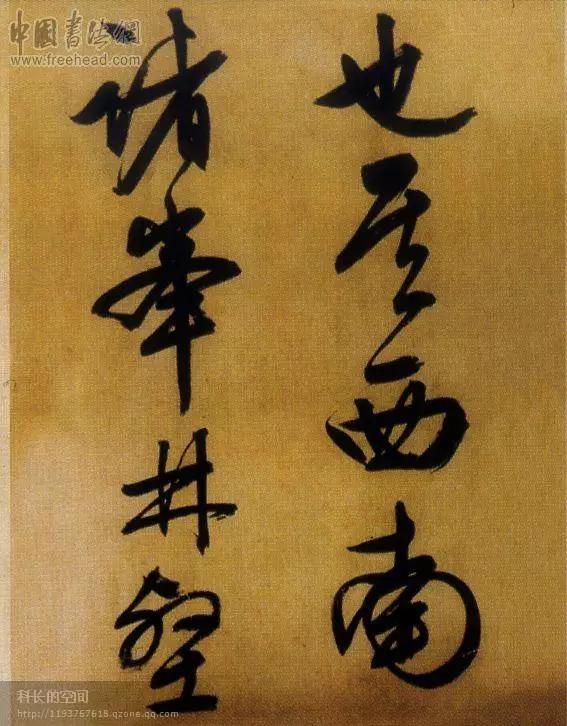 中國書法網
www.freehead.com
也其西南
諸峯林壑
科长的空间
http://1193767618.qzone.qq.com